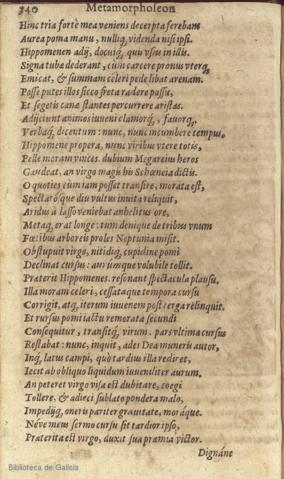 340 Metamorpholeon
Hinc tria fortè mea veniens decerpta ferebam
Aurea poma manu, nulliq; videnda nisi ipsi.
Hippomenen adij, docuiq; quis vsus in illis.
Signa tubæ dederant, cùm carcere pronus vterq;
Emicat, & summam celeri pede libat arenam.
Posse putes illos sicco freta radere passu,
Et segetis canæ stantes percurrere aristas.
Adijciunt animos iuueni clamorq;, fauorq;,
Verbaq; dicentum: nunc, nunc incumbere tempus,
Hippomene propera, nunc viribus vtere totis,
Pelle moram vinces. dubium Megareius heros
Gaudeat, an virgo magis his Schœneia dictis.
O quoties cùm iam posset transire, morata est,
Spectatósque diu vultus inuita reliquit,
Aridus à lasso veniebat anhelitus ore,
Metaq; erat longe: tum denique de tribus vnum
Fœtibus arboreis proles Neptunia misit.
Obstupuit virgo, nitidiq; cupidine pomi
Declinat cursus: aurúmque volubile tollit.
Præterit Hippomenes. resonant spectacula plausu.
Illa moram celeri, cessatáque tempora cursu
Corrigit, atq; iterum iuuenem post terga relinquit.
Et rursus pomi iactu remorata secundi
Consequitur, transitq; virum. pars vltima cursus
Restabat: nunc, inquit, ades Dea muneris autor,
Inq; latus campi, quò tardius illa rediret,
Iecit ab obliquo liquidum iuueniliter aurum.
An peteret virgo visa est dubitare, coegi
Tollere. & adieci sublato pondera malo,
Impedijq; oneris pariter grauitate, moráque.
Néve meus sermo cursu sit tardior ipso,
Præterita est virgo, duxit sua præmia victor.
Dignáne
Biblioteca de Galicia